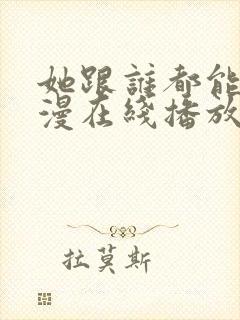 她跟誰都能
漫在綫播放
拉莫斯